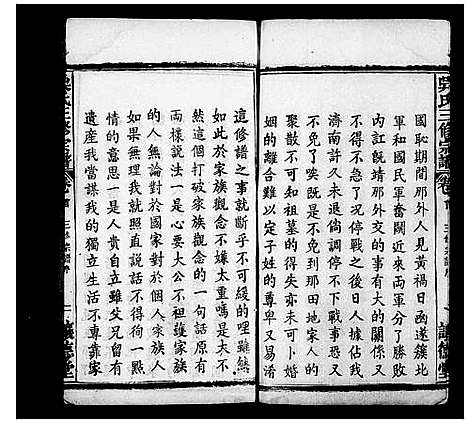 吳氏三修宗譜
國恥期間那外人見黃禍日函遂簇北
軍和國民軍奮鬬近來兩軍分了勝敗
內訌旣靖那外交的事有大的關係又
不免開了衅倘一日不停戰之後日人據占
濟南許久未退倘調停不下戰事恐又
不免打起不免到那田地家人的
聚散不可知財產的得失亦未可卜婚
的離合難以定子姓的尊卑又易淆
這修譜之事就斷乎不可緩的哩雖然
如此於家族觀念不嫌太重嗎是又不
然這個打破家族觀念的一句話原有
兩種說法一是心要大公不袒護家族
的人無論對於國家對於個人家族人
如果無理我就照直說話不得徇一點
情的意思一是人貴自立雖父兄留有
遺產我當謀我的獨立生活不專靠家
吳氏三修宗譜
三修宗譜序
讓德堂